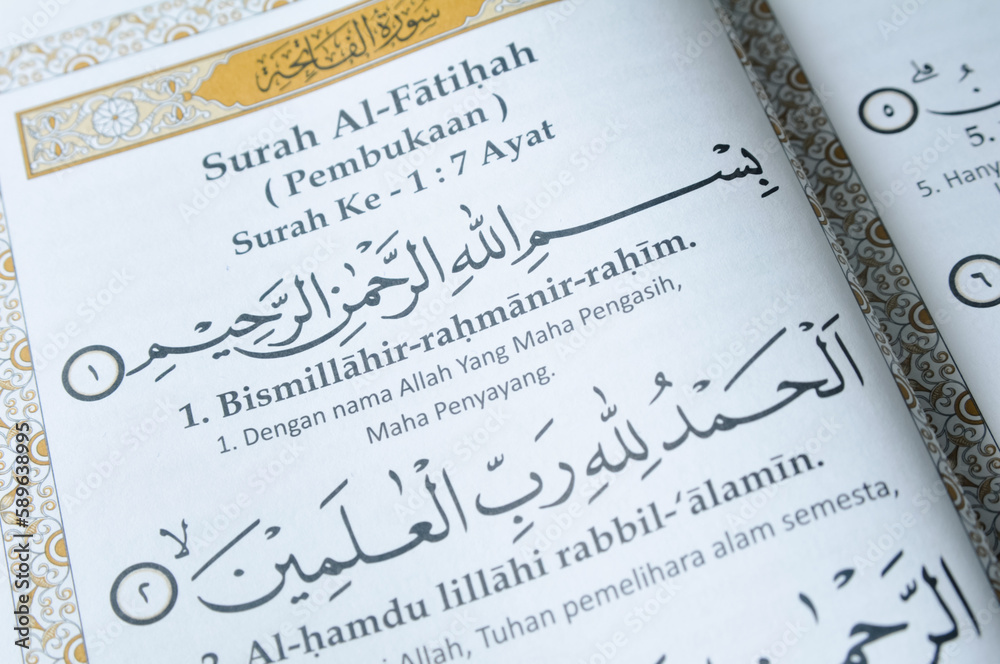 سورة الفاتحة
Surah Al-Fātiḥah
( Pembukaan )
Surah Ke - 1 : 7 Ayat
بِسْمِ اللّٰهِ الرَّحْمٰنِ الرَّحِيْمِ ١
1. Bismillāhir-raḥmānir-raḥīm.
1. Dengan nama Allah Yang Maha Pengasih,
Maha Penyayang.
اَلْحَمْدُ لِلّٰهِ رَبِّ الْعٰلَمِيْنَۙ ٢
2. Al-ḥamdu lillāhi rabbil-‘ālamīn.
Allah, Tuhan pemelihara alam semesta,
الرَّحْمٰ
٥
5.
5. Hany
٦
Adobe Stock | #589638995